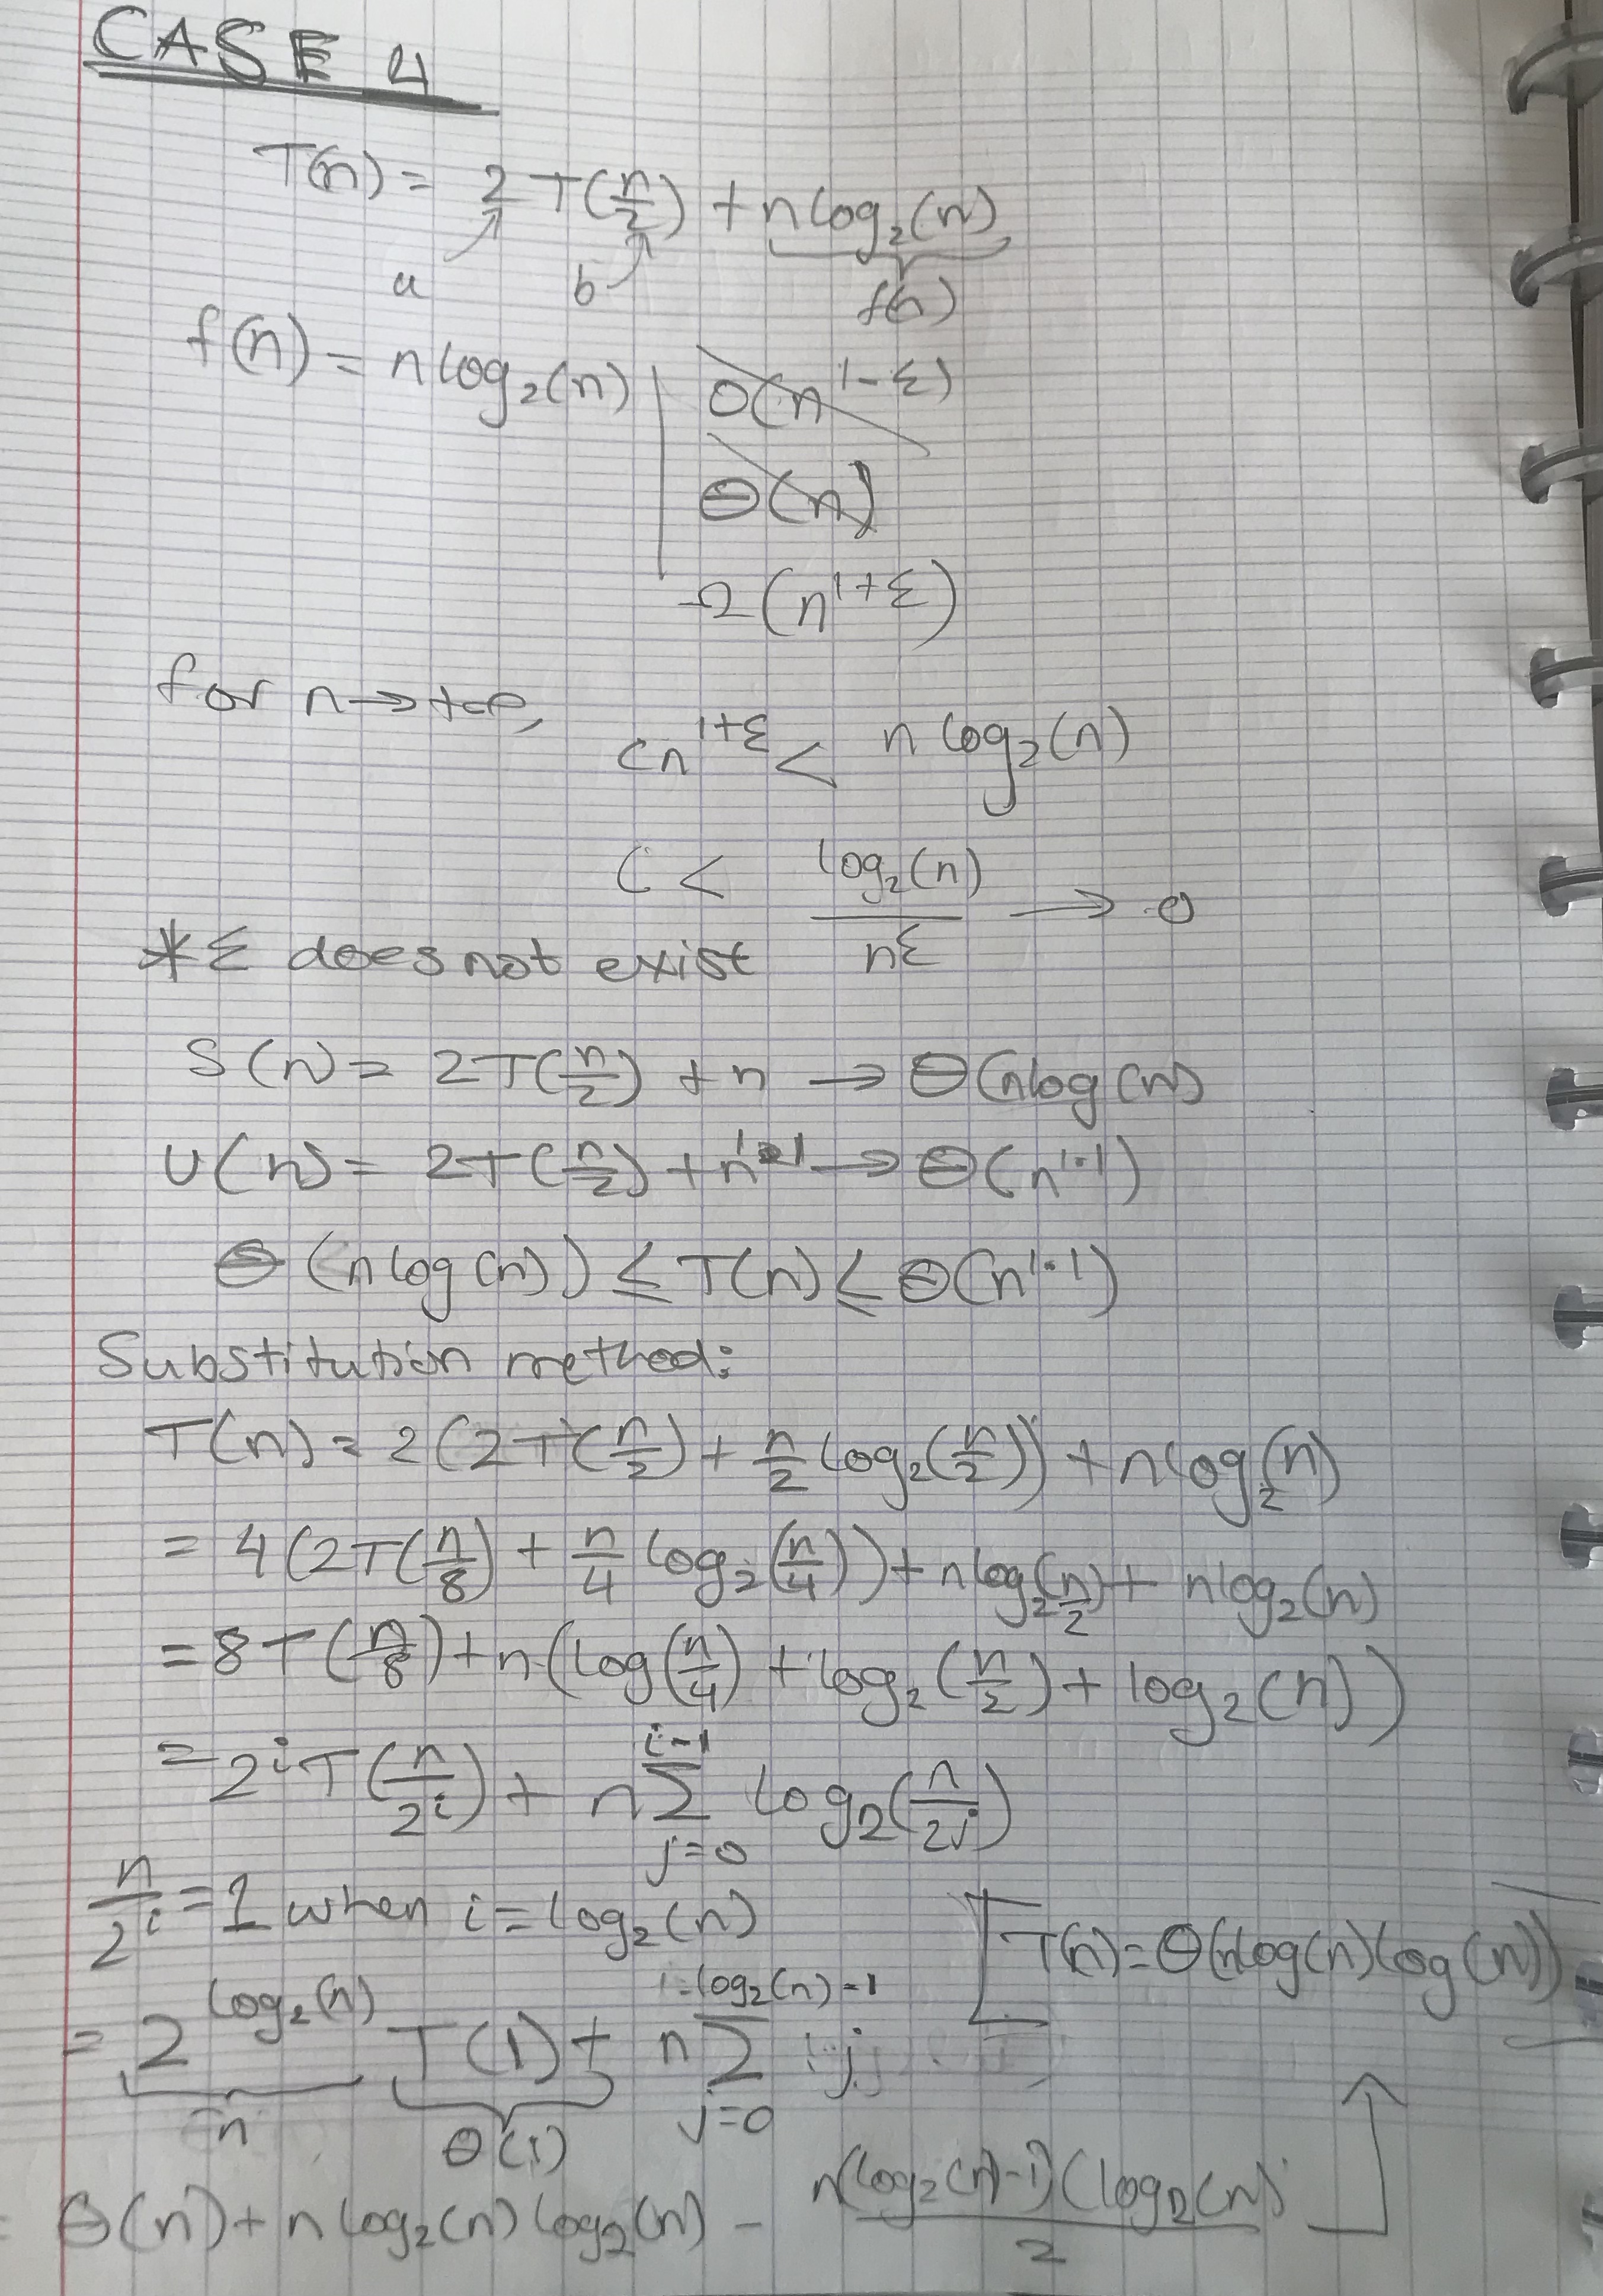 CASE 4
T(n) = 2 T(n/2) + n log₂(n)
a b f(n)
f(n) = n log₂(n) | O(n^(1-ε))
Θ(n)
Ω(n^(1+ε))
for n → +∞,
cn^(1+ε) < n log₂(n)
C < log₂(n)/n^ε → 0
* ε does not exist
S(n) = 2T(n/2) + n → Θ(n log(n)
U(n) = 2T(n/2) + n^1.1 → Θ(n^1.1)
Θ(n log(n)) ≤ T(n) ≤ Θ(n^1.1)
Substitution method:
T(n) = 2(2T(n/2) + n/2 log₂(n/2)) + n log₂(n)
= 4(2T(n/8) + n/4 log₂(n/4)) + n log₂(n/2) + n log₂(n)
= 8T(n/8) + n(log(n/4) + log₂(n/2) + log₂(n))
= 2^i T(n/2^i) + n Σ_{j=0}^{i-1} log₂(n/2^j)
n/2^i = 1 when i = log₂(n)
T(n) = Θ(n log(n) log(n))
= 2^(log₂(n)) T(1) + n Σ_{j=0}^{i=log₂(n)-1} j
n Θ(1)
= Θ(n) + n log₂(n) log₂(n) - n(log₂(n)-1)(log₂(n)/2